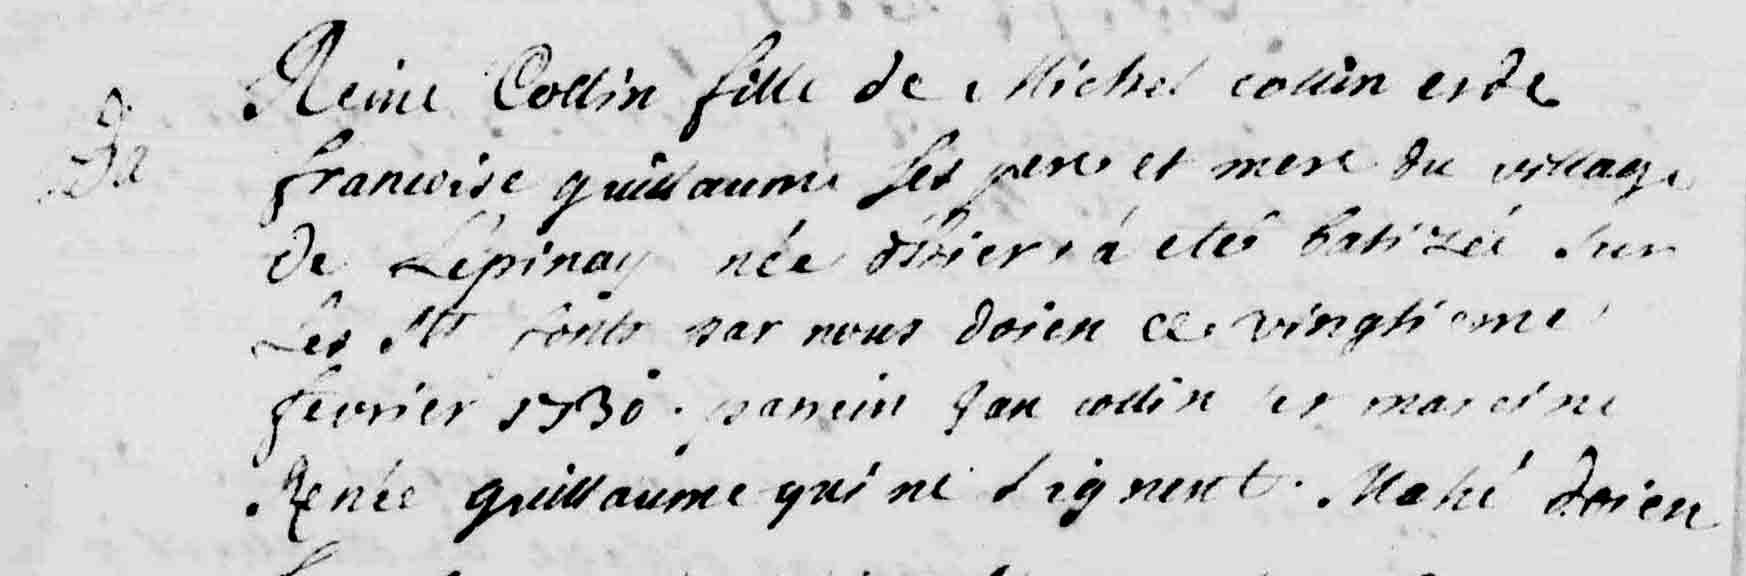 Reine Collin fille de Michel collin et de
francoise guillaume ses pere et mere du village
de Lépinay née d'hier à eté batizéé sur
Les Sts fonts par nous doien ce vingtieme
fevrier 1730. parrein Jan collin et mareine
Renée guillaume qui ne signent. Mahé doien